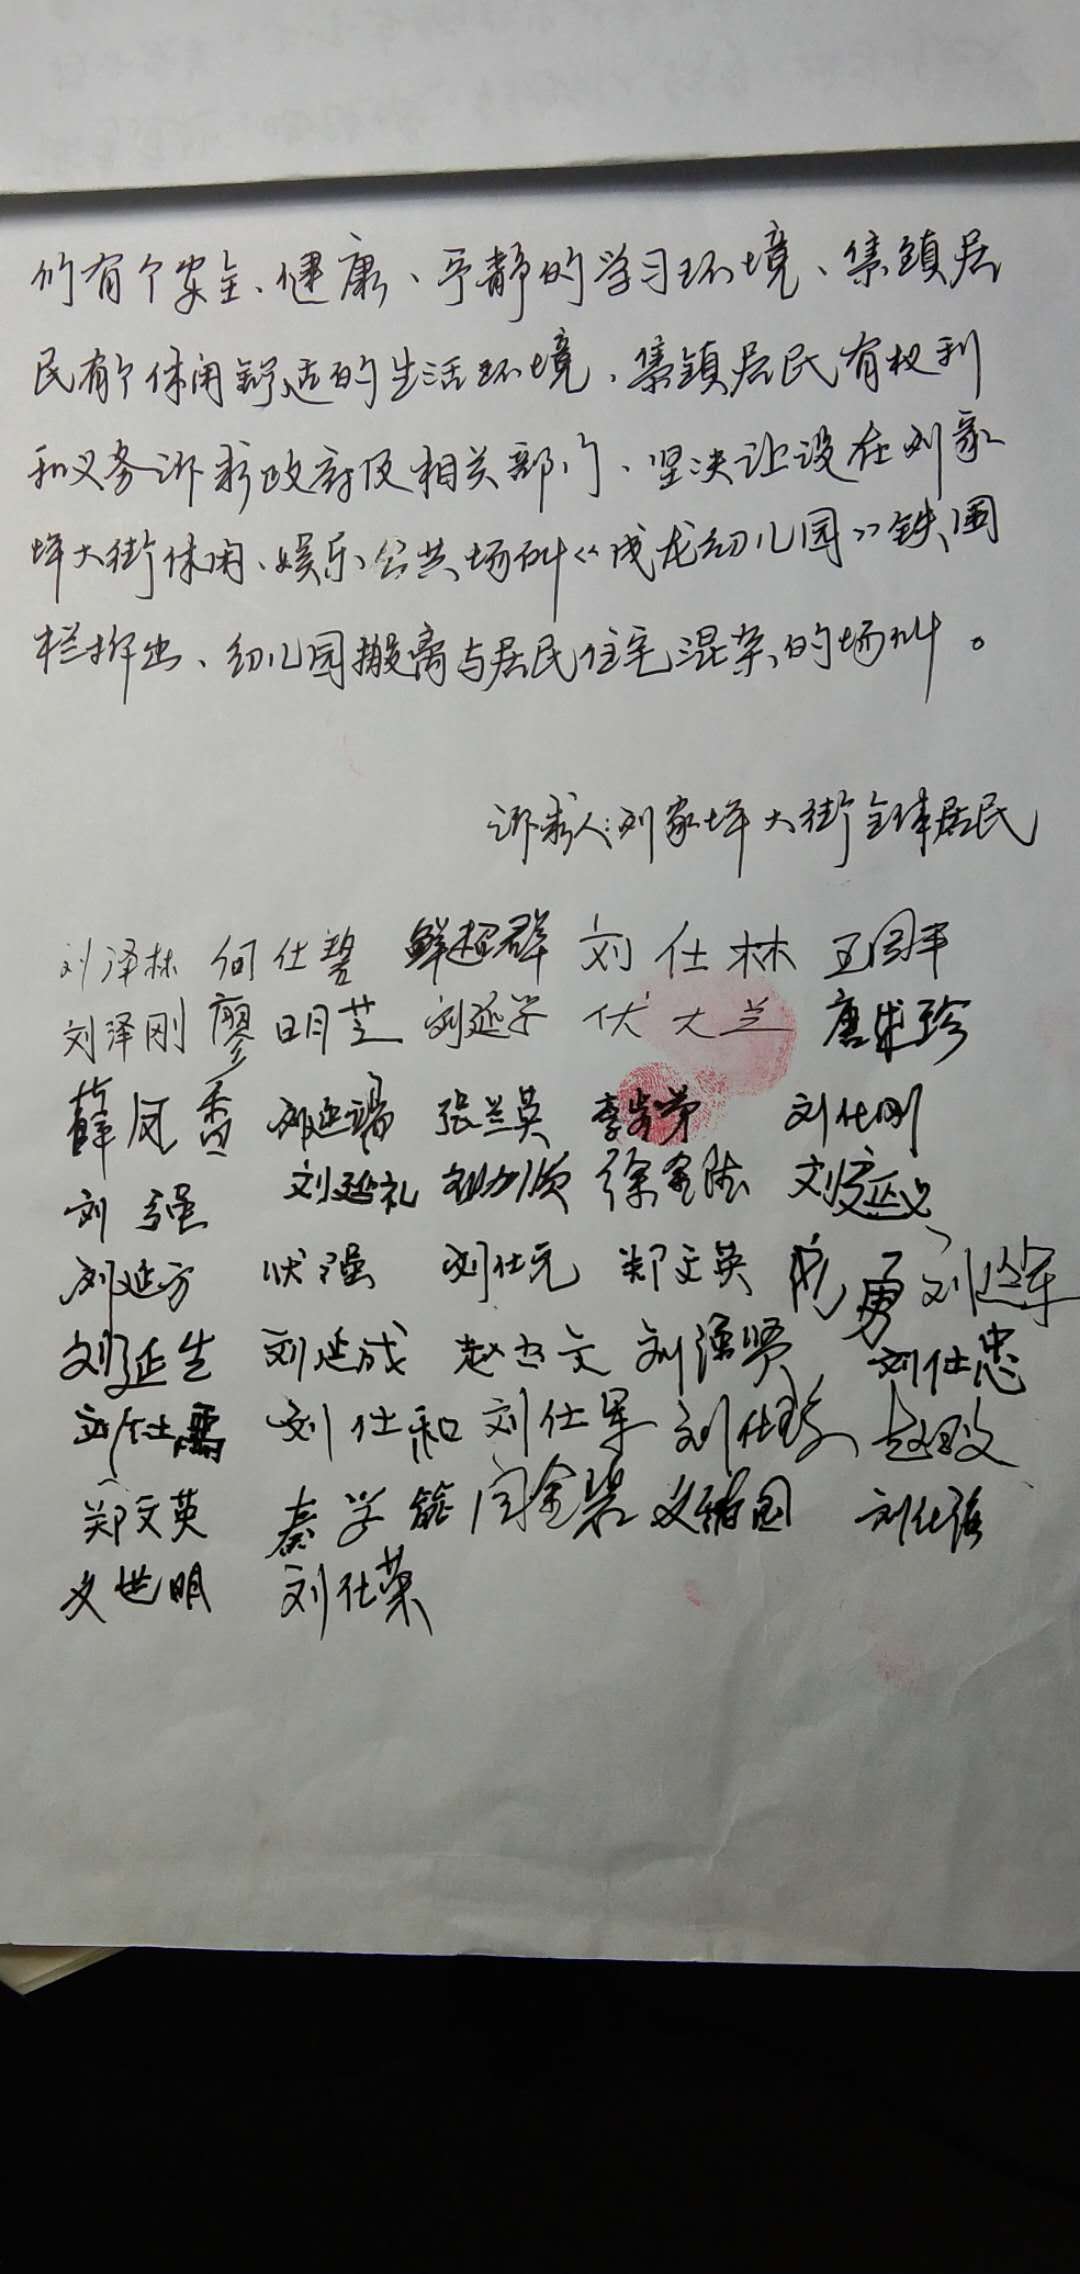 们有个安全、健康、宁静的学习环境、集镇居
民有个休闲舒适的生活环境、集镇居民有权利
和义务诉求政府及相关部门、坚决让设在刘家
坪大街休闲、娱乐公共场所《成龙幼儿园》铁围
栏拆出、幼儿园搬离与居民住宅混杂的场所。
诉求人:刘家坪大街全体居民
刘泽林 何仕碧 鲜超群 刘仕林 王国平
刘泽刚 廖明芝 刘延学 伏大兰 唐珍
薛凤香 刘延 张兰英 李 刘仕刚
刘强 刘延礼 徐 刘延义
刘延方 伏强 刘仕元 郑文英 勇 刘军
刘延生 刘延成 赵文 刘贤 刘仕忠
刘仕 刘仕和 刘仕军 刘仕 赵政
郑文英 秦学能 金碧 文国 刘仕强
文世明 刘仕荣